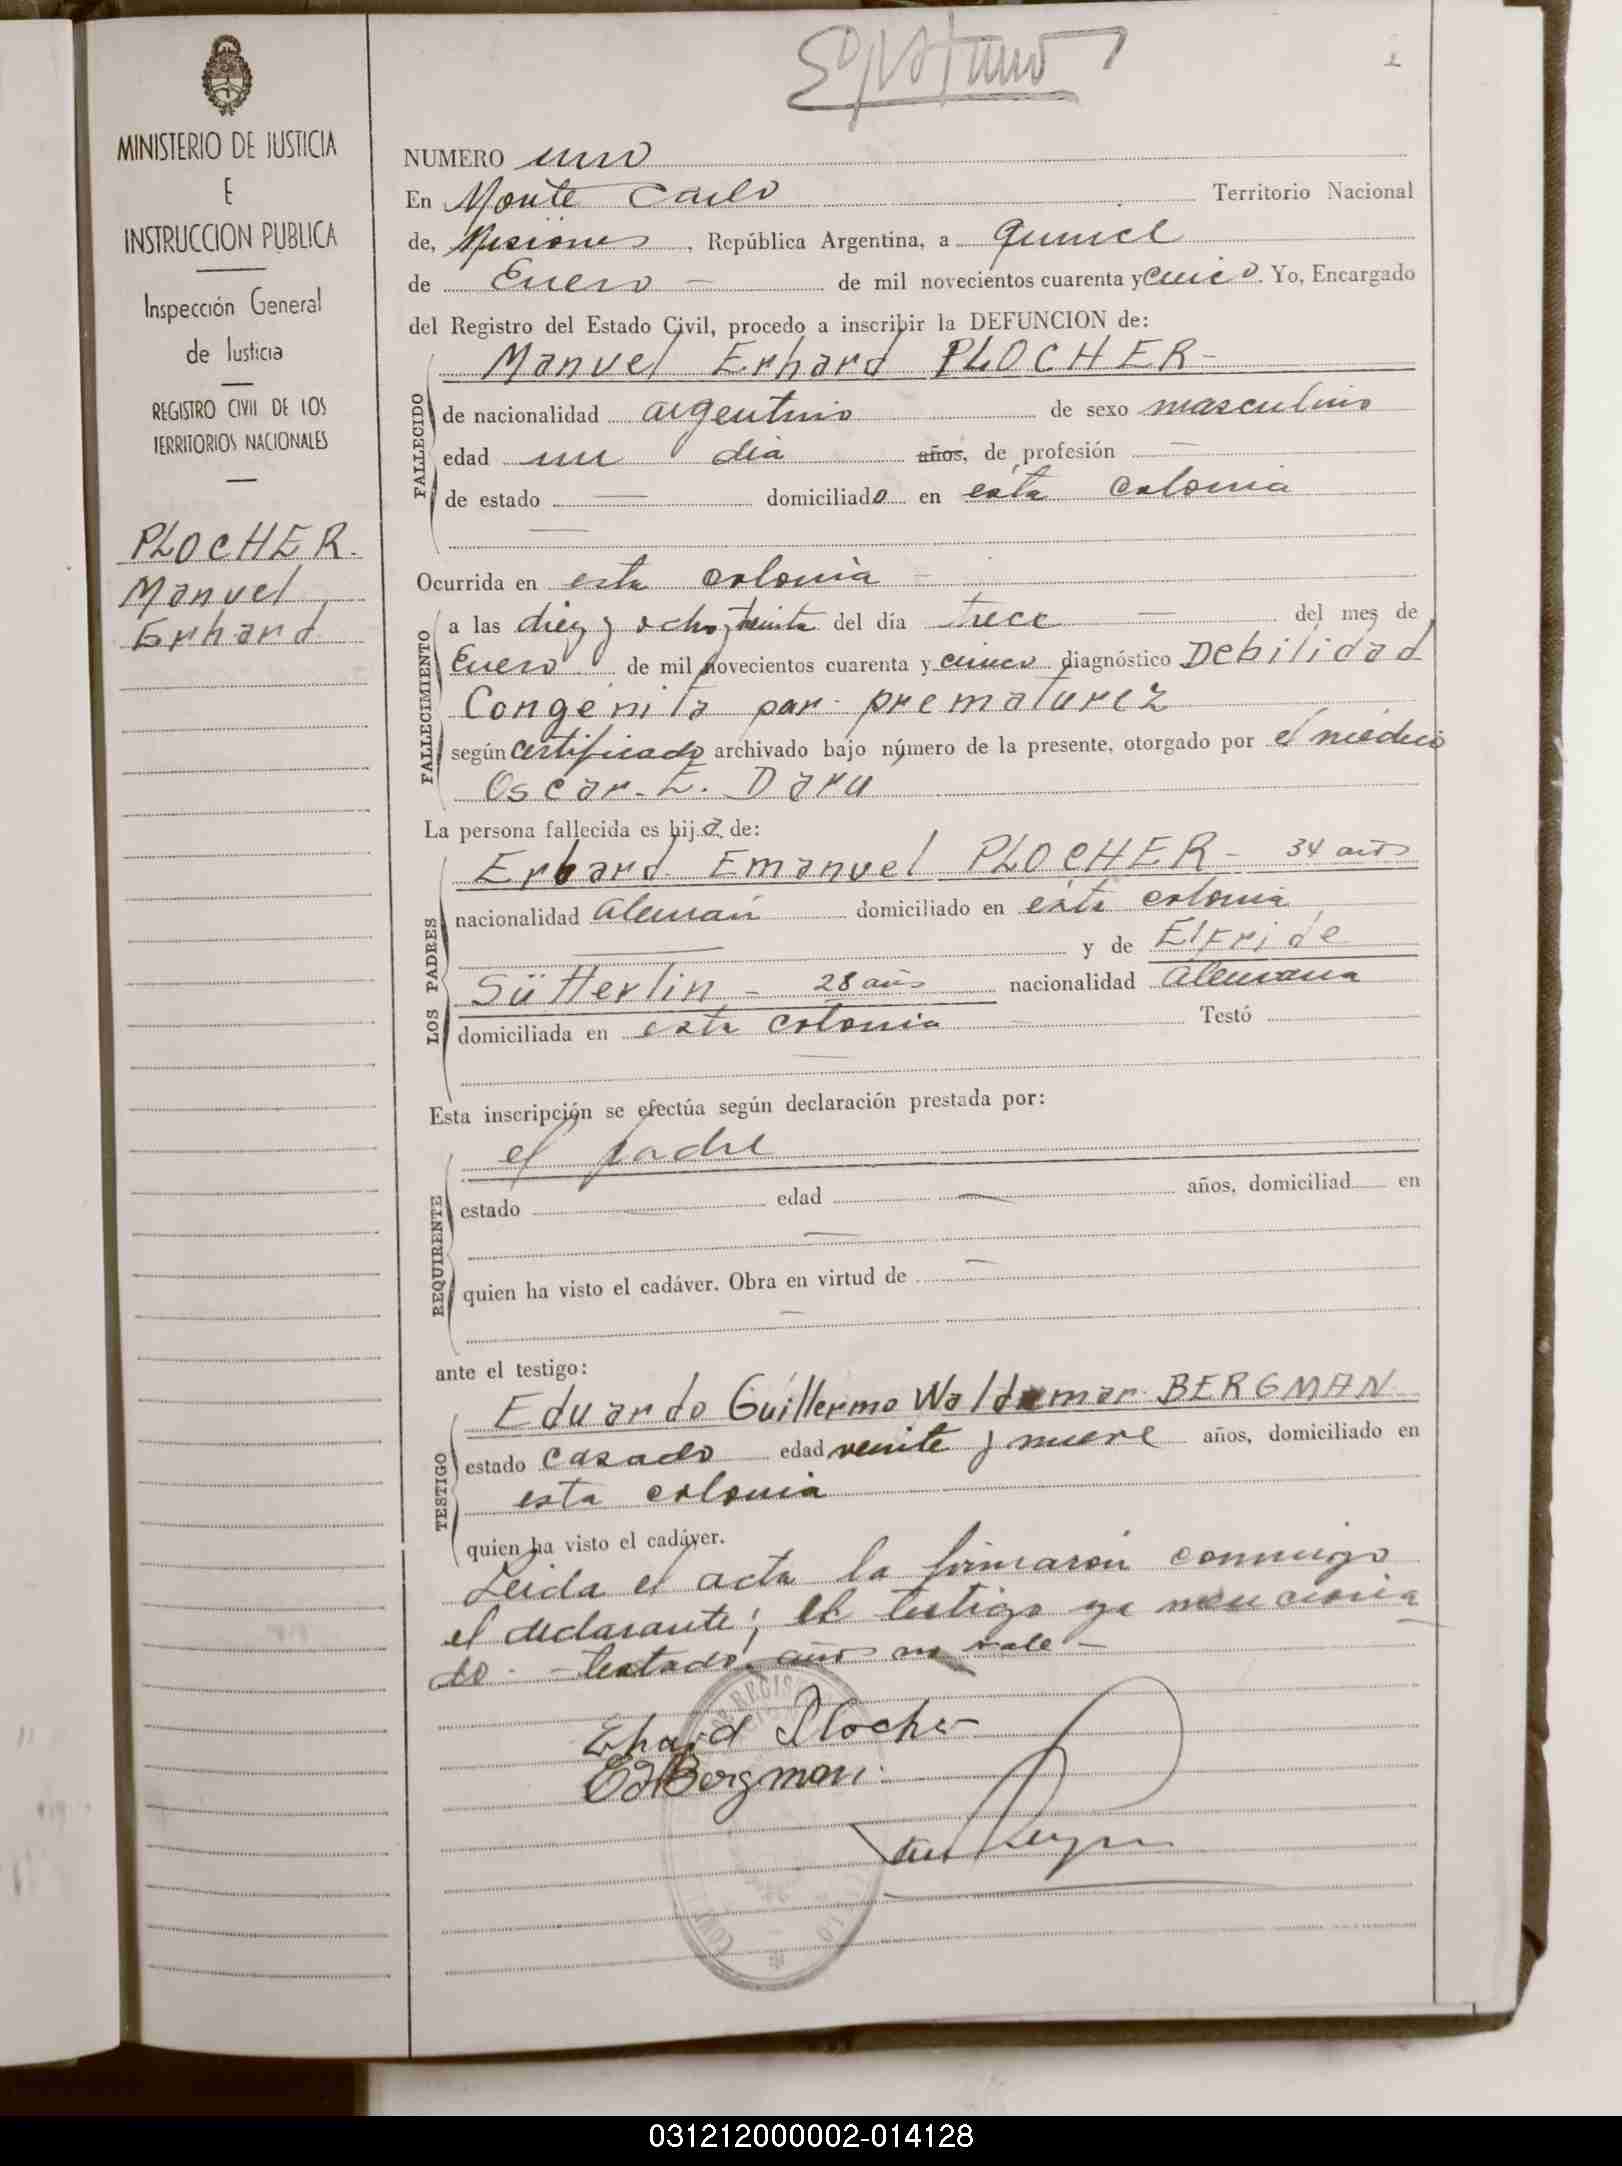 MINISTERIO DE JUSTICIA
E
INSTRUCCION PUBLICA
Inspección General
de Justicia
REGISTRO CIVIL DE LOS
TERRITORIOS NACIONALES
PLOCHER.
Manuel
Erhard
NUMERO uno
En Monte Carlo Territorio Nacional
de, Misiones, República Argentina, a quince
de Enero — de mil novecientos cuarenta y cinco. Yo, Encargado
del Registro del Estado Civil, procedo a inscribir la DEFUNCION de:
FALLECIDO
Manuel Erhard PLOCHER-
de nacionalidad argentino de sexo masculino
edad un dia años, de profesión —
de estado — domiciliado en esta colonia
—
Ocurrida en esta colonia —
FALLECIMIENTO
a las diez y ocho y treinta del día trece — del mes de
Enero de mil novecientos cuarenta y cinco diagnóstico Debilidad
Congénita por prematurez
según certificado archivado bajo número de la presente, otorgado por el médico
Oscar. E. Daru
La persona fallecida es hijo de:
LOS PADRES
Erhard Emanuel PLOCHER - 34 años
nacionalidad Alemán domiciliado en esta colonia
— y de Elfride
Sütterlin - 28 años nacionalidad Alemana
domiciliada en esta colonia — Testó
—
Esta inscripción se efectúa según declaración prestada por:
REQUIRENTE
el padre
estado — edad — años, domiciliad en
—
quien ha visto el cadáver. Obra en virtud de —
—
ante el testigo:
TESTIGO
Eduardo Guillermo Waldemar BERGMAN
estado casado edad veinte y nueve años, domiciliado en
esta colonia
quien ha visto el cadáver.
Leida el acta la firmaron conmigo
el declarante; el testigo ya menciona
do. - testado: años no vale -
Ehard Plocher
Ed Bergman.
031212000002-014128